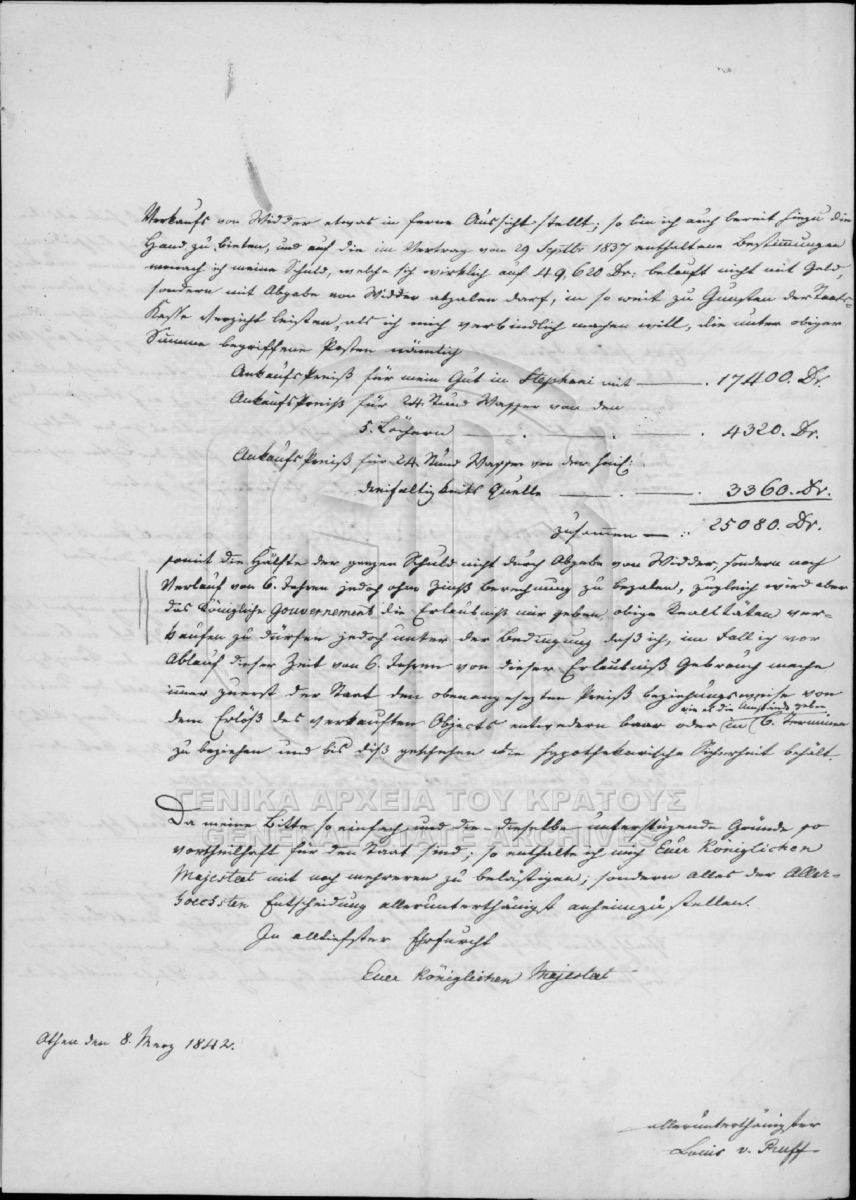 Verkaufs von Widder etwas in ferne Aussicht stellt; so bin ich auch bereit hiezu die
Hand zu bieten, und auf die im Vertrag von 29 Septbr 1837 enthaltene Bestimmungen
wonach ich meine Schuld, welche sich wirklich auf 49,620 Dr: belauft nicht mit Geld,
sondern mit Abgabe von Widder abzalen darf, in so weit zu Gunsten der Staats-
Kasse Verzicht leisten, als ich mich verbindlich machen will, die unter obiger
Summe begriffene Posten nämlich
Ankaufs Preiß für mein Gut in Stephani mit — . 17400. Dr.
Ankaufs Preiß für 24. Stund Wasser von den
5. Löchern — . — . 4320. Dr.
Ankaufs Preiß für 24. Stund Wasser von der heil:
dreifaltigkeits Quelle — . — . 3360. Dr.
zusammen — .: 25080. Dr.
somit die Hälfte der ganzen Schuld nicht durch Abgabe von Widder, sondern nach
Verlauf von 6. Jahren jedoch ohne Zinß berechnung zu bezalen, zugleich wird aber
das Königliche Gouvernement die Erlaubniß mir geben, obige Realitäten ver-
kaufen zu dürfen jedoch unter der Bedingung daß ich, im Fall ich vor
Ablauf dieser Zeit von 6. Jahren von dieser Erlaubniß Gebrauch mache
immer zuerst der Staat den obenangesezten Preiß beziehungsweise von
wie es die Umstände geben
dem Erlöß des verkauften Objects entwedern baar oder in 6. Terminen
zu beziehen und bis diß geschehen die hypothekarische Sicherheit behält.
ΓΕΝΙΚΑ ΑΡΧΕΙΑ ΤΟΥ ΚΡΑΤΟΥΣ
GENERAL STATE ARCHIVES
Da meine Bitte so einfach, und die dieselbe unterstüzende Gründe so
vortheilhaft für den Staat sind; so enthalte ich mich Euer Königlichen
Majestaet mit noch mehreren zu belästigen; sondern alles der Aller-
hoechsten Entscheidung allerunterthänigst anheimzustellen.
In alltiefster Ehrfurcht
Euer Königlichen Majestaet
Athen den 8. Merz 1842.
allerunterthänigster
Louis v.